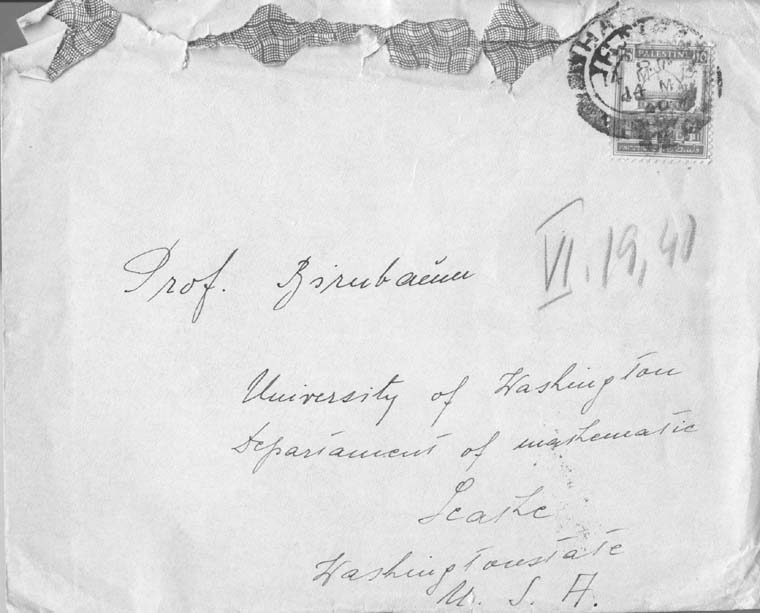 PALESTINE
14 MA
VI. 19, 41
Prof. Birnbaum
University of Washington
Departament of mathematic
Seatle
Washingtonstate
U. S. A.